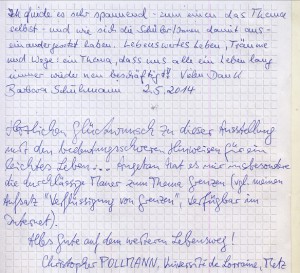 Ich finde es sehr spannend - zum einen das Thema
selbst - und wie sich die Schüler/innen damit aus-
einandergesetzt haben. Lebenswertes Leben, Träume
und Wege: ein Thema, dass uns alle ein Leben lang
immer wieder neu beschäftigt! Vielen Dank
Barbara Schühmann 2.5.2014
Herzlichen Glückwunsch zu dieser Ausstellung
mit den bedeutungsschweren Hinweisen für ein
leichtes Leben... Angetan hat es mir insbesondere
die durchlässige Mauer zum Thema Grenzen (vgl. meinen
Aufsatz "Verflüssigung von Grenzen", verfügbar im
Internet).
Alles Gute auf dem weiteren Lebensweg!
Christopher POLLMANN, Université de Lorraine, Metz